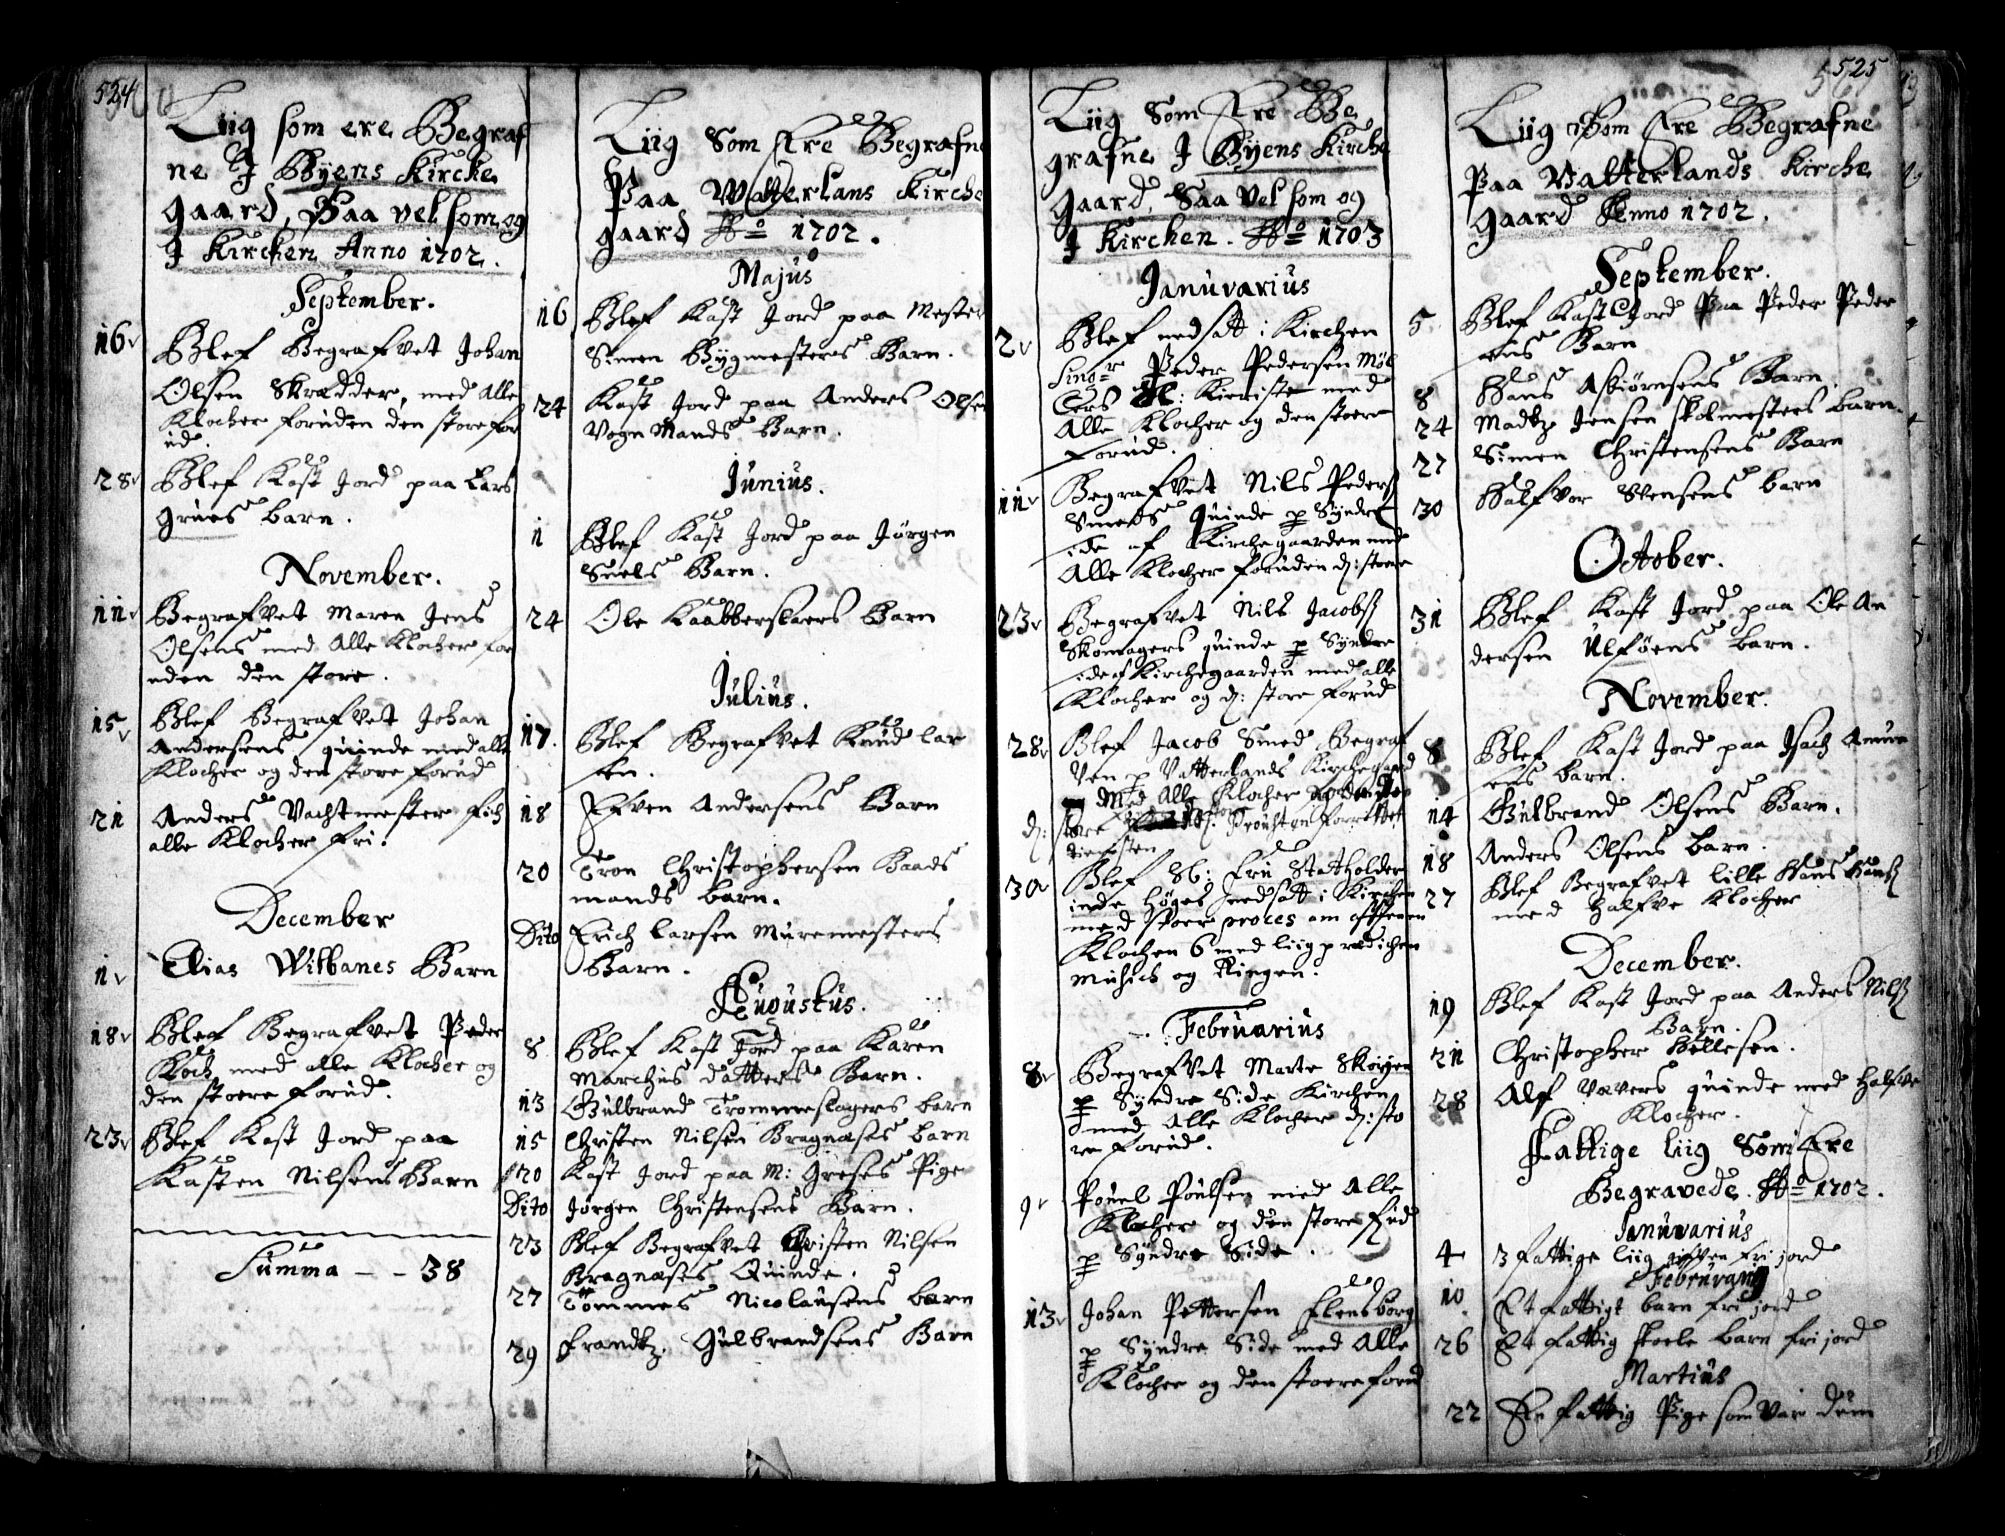 524
Liig som ere Begraf
ne J Byens Kircke
gaard, Saa vel som og
J Kircken Anno 1702.
September.
16 Blef Begrafvet Johan
Olsen Skrædder, med Alle
Klocher foruden den store for
ud.
28 Blef Kast Jord paa Lars
Grües barn.
November.
11 Begrafvet Maren Jens
Olsens med Alle Klocher for
uden den store.
15 Blef Begrafvet Johan
Andersens quinde med alle
Klocher og den store forud
21 Anders Vachtmester fich
alle Klocher fri.
December
1 Elias Wilbanes Barn
18 Blef Begrafvet Peder
Koch med alle Klocher og
den stoere forud.
23 Blef Kast Jord paa
Kasten Nilsens Barn
Summa - - 38
Liig Som Ere Begrafne
Paa Watterlans Kirche
gaard Ao 1702.
Majus
16 Blef Kast Jord paa Mester
Simen Bygmesters Barn.
24 Kast Jord paa Anders Olsen
Vogn Mands Barn.
Junius.
1 Blef Kast Jord paa Jørgen
Snels Barn.
24 Ole Kaabberslaers Barn
Julius.
17. Blef Begrafvet Knud Lar
sen.
18 Efven Andersens Barn
20 Tron Christophersen Baads
mands barn.
Dito Erich Larsen Muremesters
Barn.
Augustus.
8 Blef Kast Jord paa Karen
Marchus datters Barn.
13 Gulbrand Trommeslagers barn
15 Christen Nilsen Bragnæses barn
20 Kast Jord paa M: Greses Pige
Dito Jørgen Christensens Barn.
23 Blef Begrafvet Christen Nilsen
Bragnæses Quinde.
27 Tommes Nicolausens barn
29 Frandtz Gulbrandsens Barn
525
Liig Som Ere Be
grafne J Byens Kirche
gaard, Saa vel som og
J Kirchen. Ao 1703
Januvarius
2 Blef nedsatt i Kirchen
Singr Peder Pedersen Møl
lers Sl: Kieriste med
Alle Klocher og den stoere
forud.
11 Begrafvet Nils Peders
Smeds quinde p Syndre
side af Kirchegaarden med
Alle Klocher foruden d: stoere
23 Begrafvet Nils Jacobs
Skomagers quinde p Syndre
side af Kirchegaarden med alle
Klocher og d: store forud
28 Blef Jacob Smed Begraf
ven p Vatterlands Kirchegaard
Med Alle Klocher
d: store
30 Blef Sl: Fru Statholder
inde Høgs nedsatt i Kirchen
med stoer proces om afftenen
Klochen 6 med liigprædichen
Musick og Ringen.
Februarius
8 Begrafvet Marte Skøyen
p Syndre Side Kirchen
med Alle Klocher d: sto
re forud.
9 Pouel Poulsen med Alle
Klocher og den store fud
p Syndre Side.
13 Johan Pettersen Flensborg
p Syndre Side med Alle
Klocher og den stoere forud
Liig Som Ere Begrafne
Paa Vatterlands Kirche
gaard Anno 1702.
September.
5 Blef Kast Jord Paa Peder Peder
sens Barn
8 Hans Asbiørnsens Barn.
24 Madtz Jensen skolmesters barn.
27 Simen Christensens Barn
30 Halfvor Stensens barn
October.
31 Blef Kast Jord paa Ole An
dersen Ulføens barn.
November.
8 Blef Kast Jord paa Isach
barn.
14 Gulbrand Olsens Barn.
18 Anders Olsens barn.
27 Blef Begrafvet lille Hans
med halfve Klocher
December.
19 Blef Kast Jord paa Anders Nils
Barn.
21 Christopher Hellesen.
28 Alf Vævers quinde med halfve
Klocher.
Fattige liig Som Ere
Begravede. Ao 1702.
Januvarius
4 3 fattige liig gifven fri jord
Februvarij
10 Et fattigt barn fri jord
26 Et fattig skoele barn fri jord
Martius
22 En fattig Pige som var dum